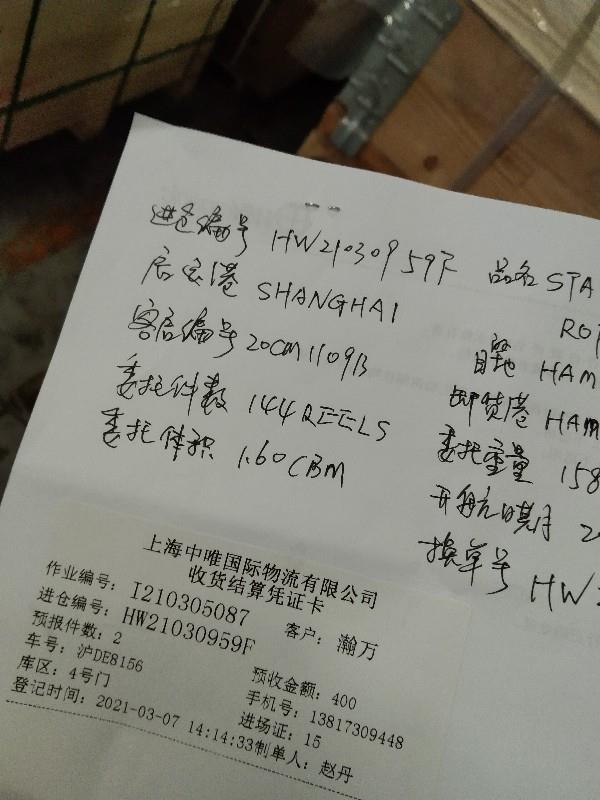 进仓编号 HW21030959F 品名 STA
启运港 SHANGHAI ROP
客户编号 20CM1109B 目的地 HAM
委托件数 144 REELS 卸货港 HAM
委托体积 1.60CBM 委托重量 158
开航日期 20
提单号 HW2
上海中唯国际物流有限公司
收货结算凭证卡
作业编号: I210305087 客户: 瀚万
进仓编号: HW21030959F
预报件数: 2 预收金额: 400
车号: 沪DE8156 手机号: 13817309448
库区: 4号门 进场证: 15
登记时间: 2021-03-07 14:14:33 制单人: 赵丹